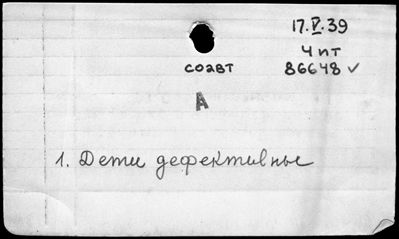 17.V.39
4 пт
соавт 86648 ✓
А
1. Дети дефективные